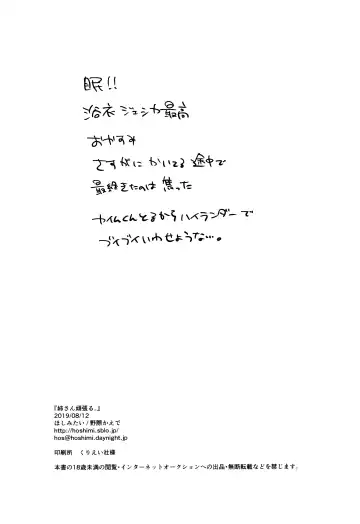 眠!!
浴衣ジェシカ最高
おやすみ
さすがに かいてる 途中で
最終きたのは 焦った
カイムくんとるからハイランダーで
ブイブイいわせような…。
『姉さん頑張る。』
2019/08/12
ほしみたい / 野際かえで
http://hoshimi.sblo.jp/
hos@hoshimi.daynight.jp
印刷所 くりえい社様
本書の18歳未満の閲覧・インターネットオークションへの出品・無断転載などを禁じます。